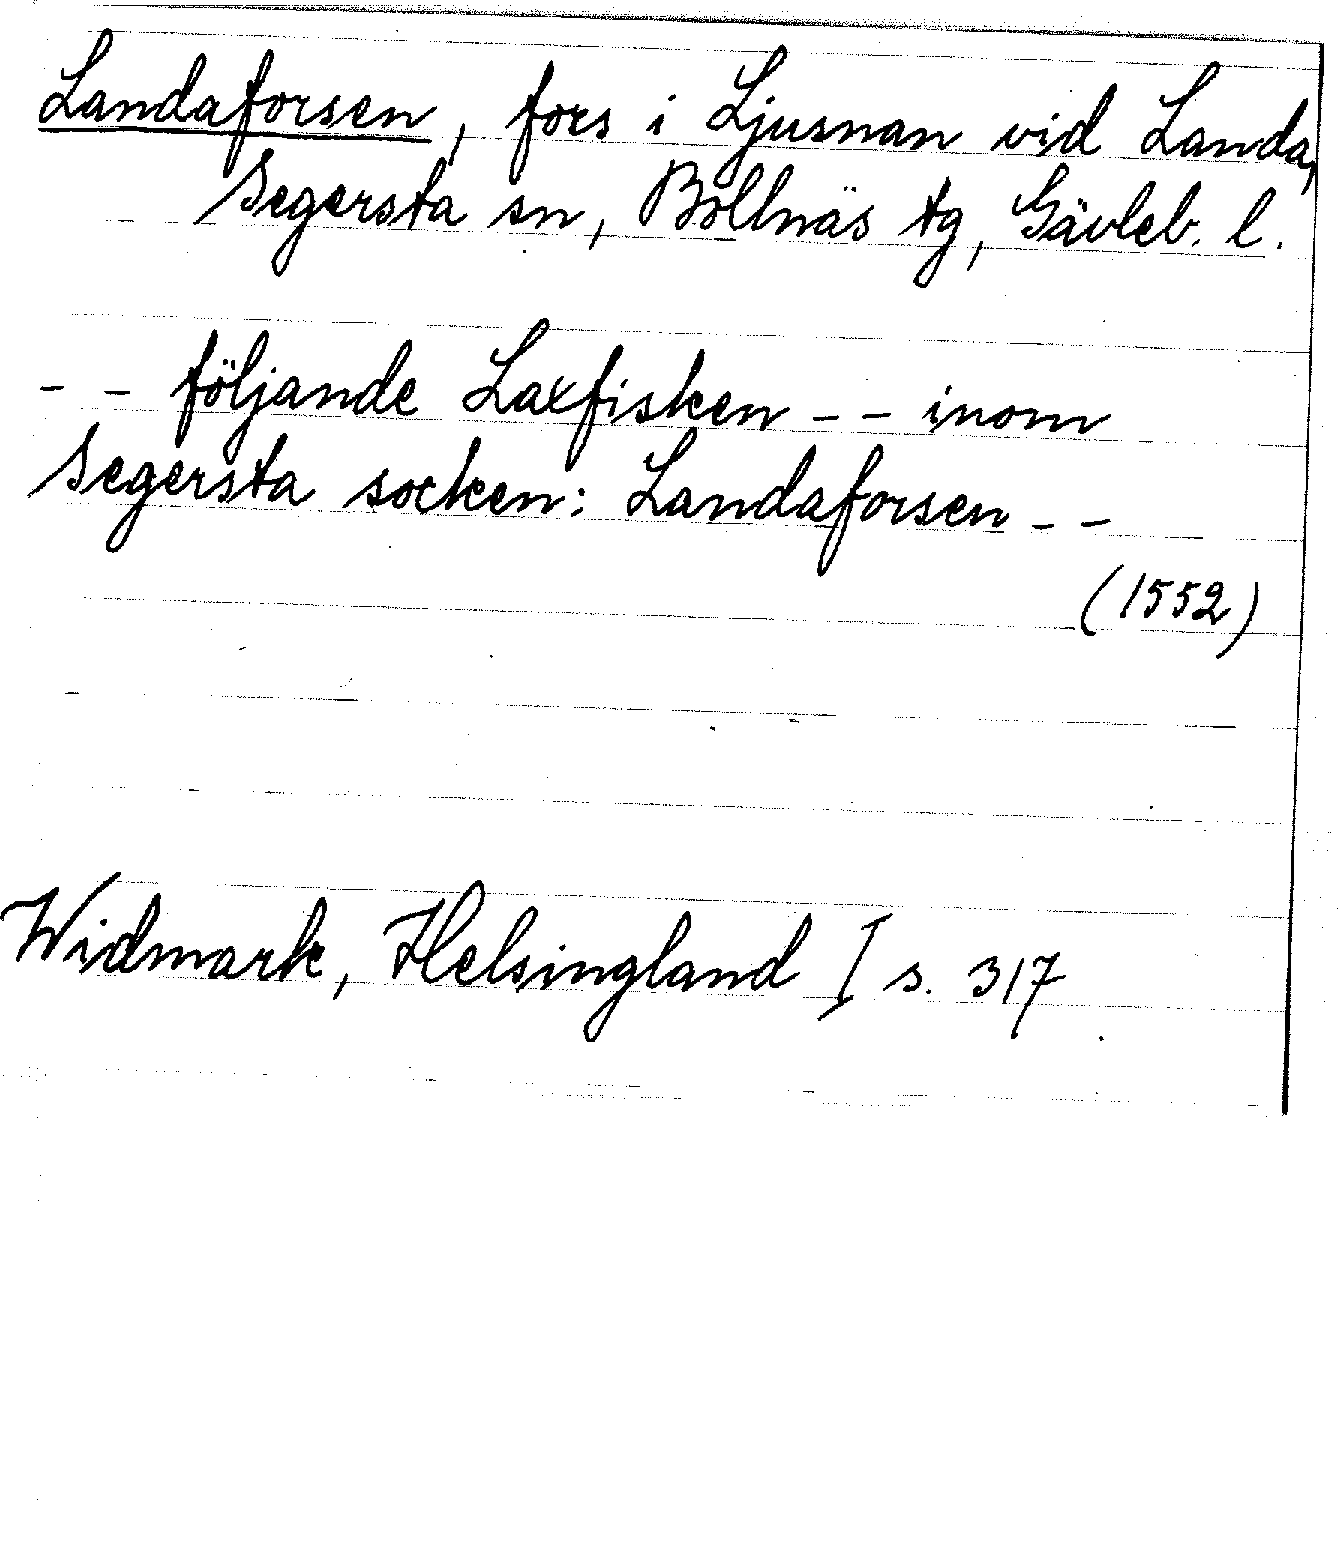 Landaforsen, fors i Ljusnan vid Landa,
Segersta sn, Bollnäs tg, Gävleb. l.
- - följande Laxfisken - - inom
Segersta socken: Landaforsen - -
(1552)
Widmark, Helsingland I s. 317